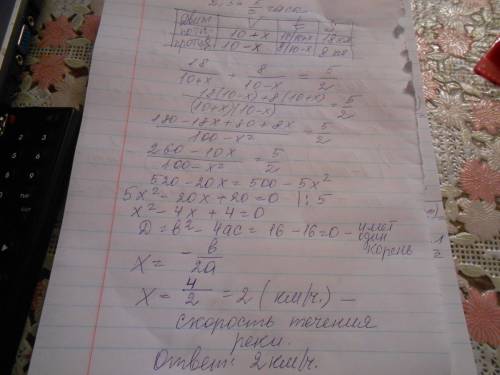 часа
Движ. V t S
по т. 10+x 18/10+x 18 км
против 10-x 8/10-x 8 км
18/10+x + 8/10-x = 5/2
18(10-x)+8(10+x)/(10+x)(10-x) = 5/2
180-18x+80+8x/100-x² = 5/2
260-10x/100-x² = 5/2
520-20x=500-5x²
5x²-20x+20=0 |:5
x²-4x+4=0
D=b²-4ac=16-16=0- имеет
один
корень
x= -b/2a
x= 4/2 =2 (км/ч.) –
скорость течения
реки.
Ответ: 2 км/ч.